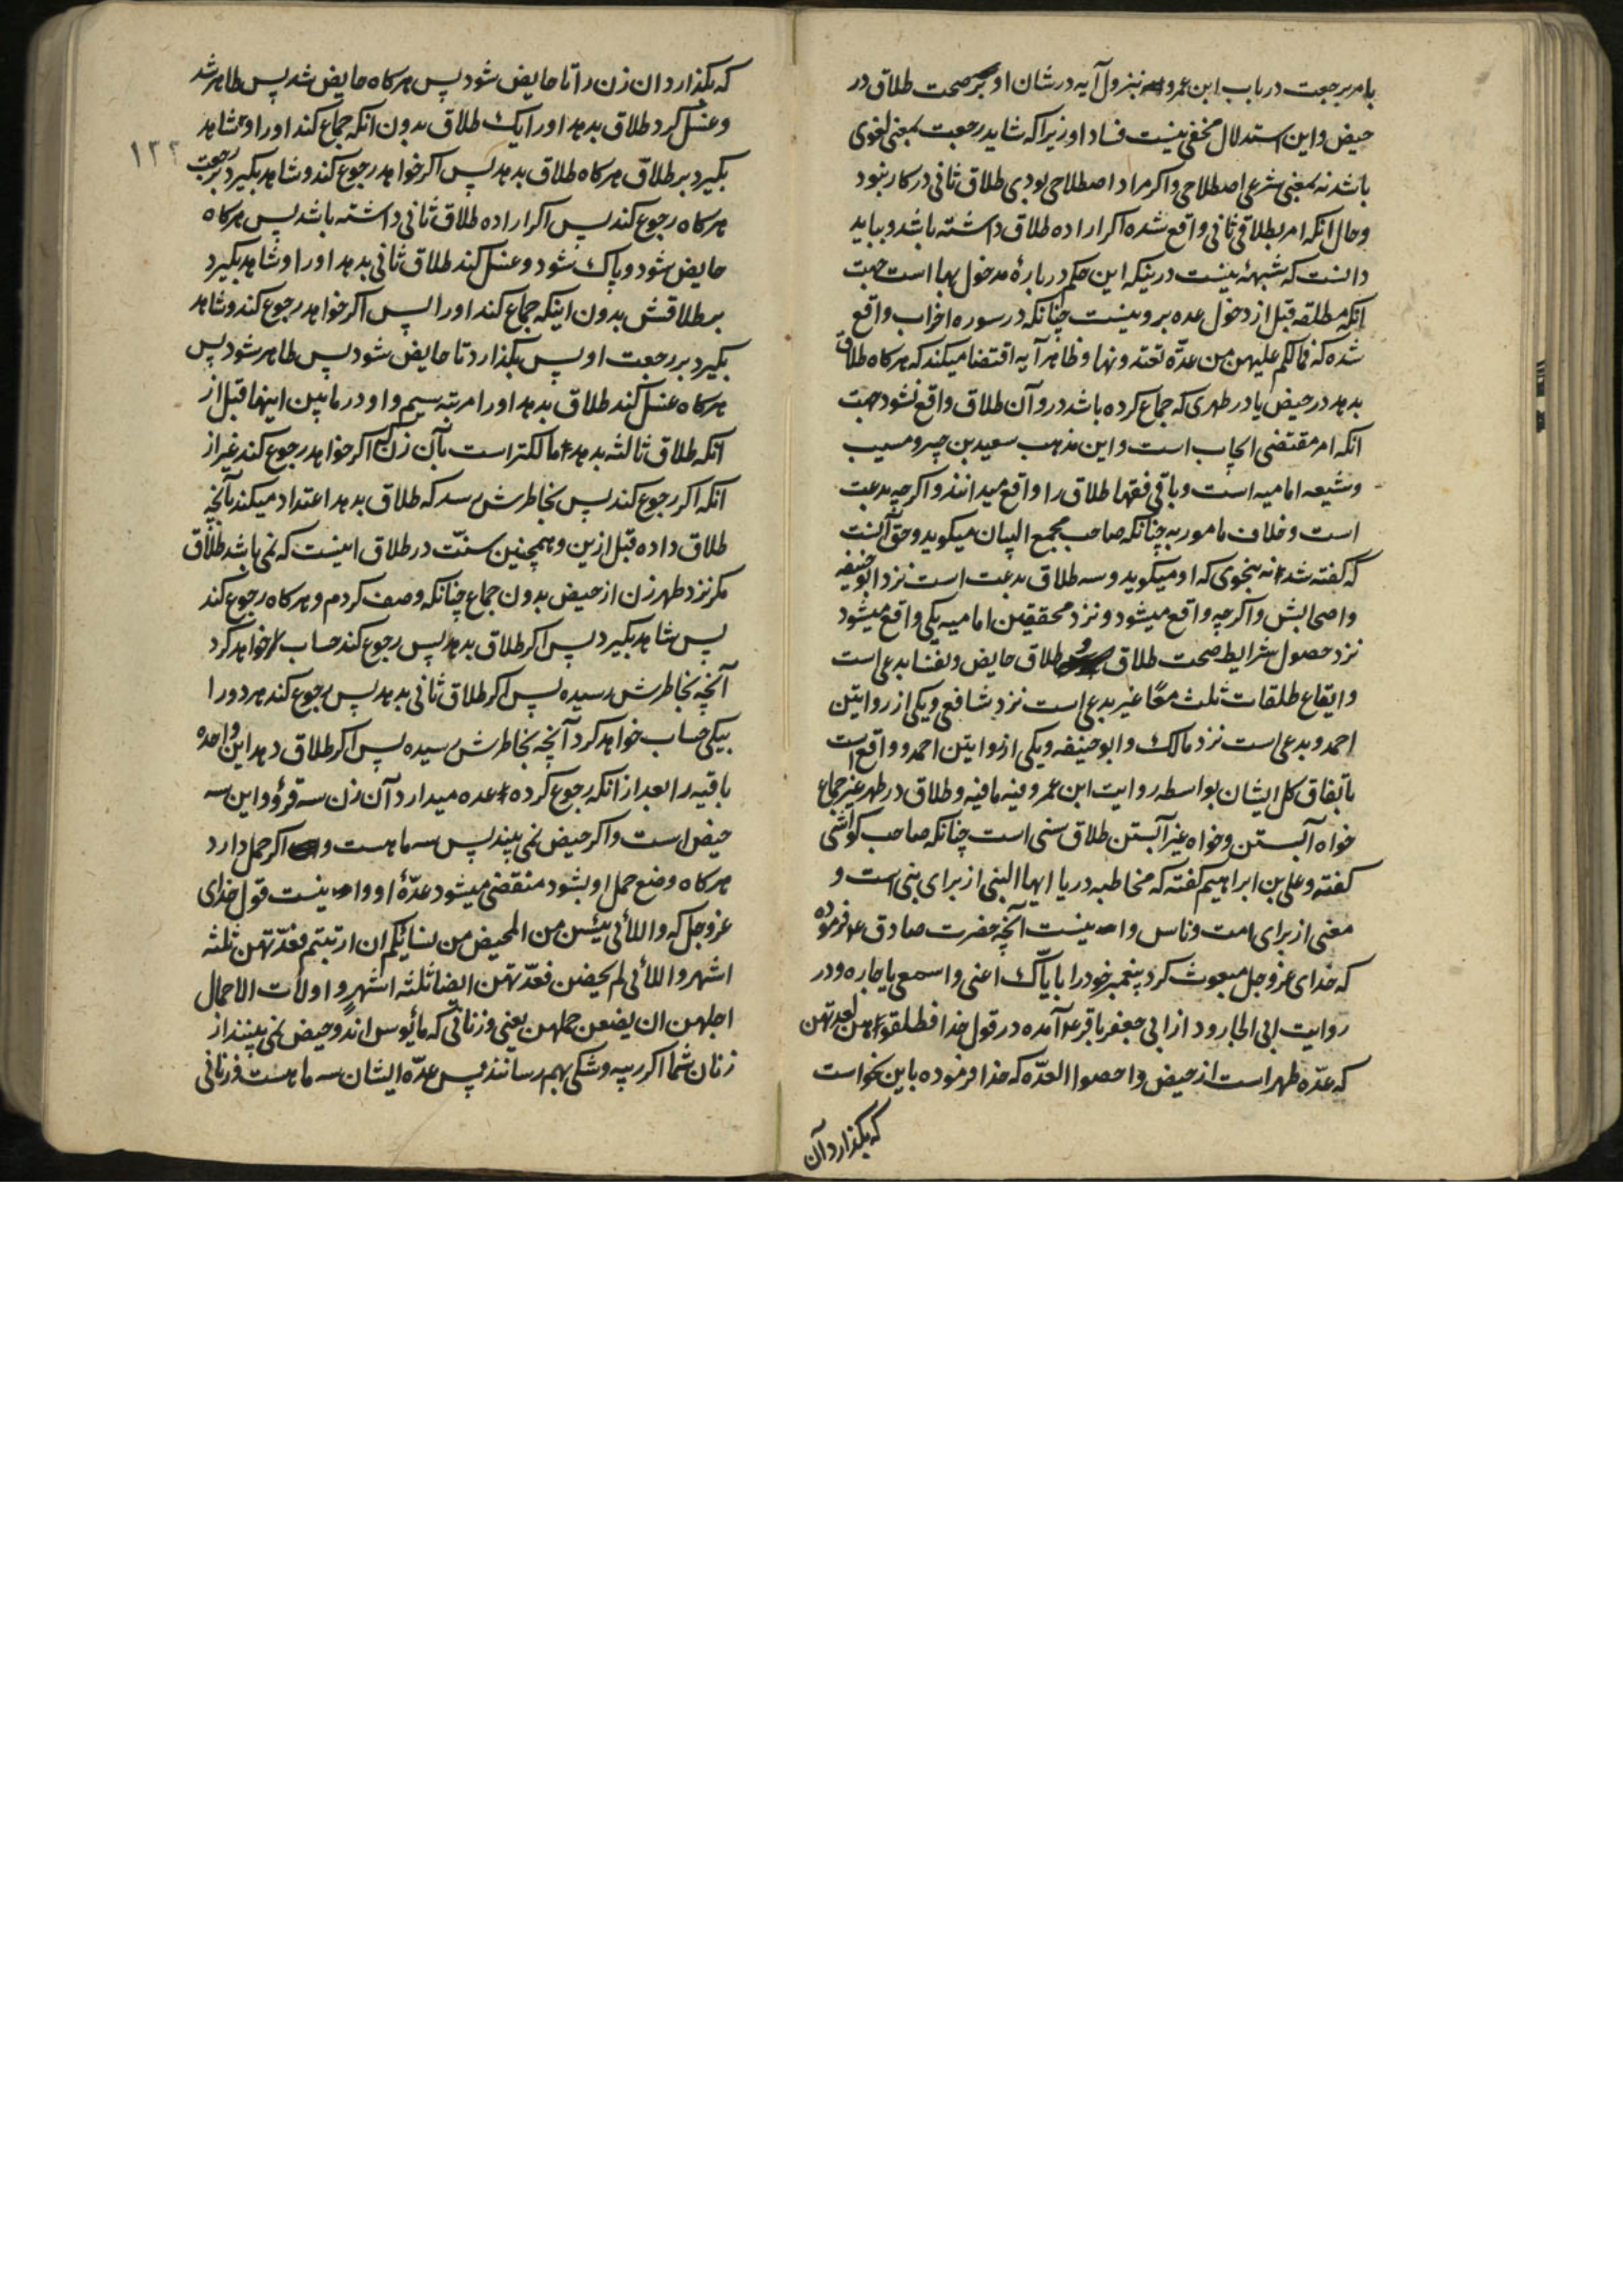 بامر برجعت در باب ابن عمرو نزول آیه در شان او بر صحت طلاق در
حیض و این استدلال مخفی نیست فساد او زیرا که شاید رجعت بمعنی لغوی
باشد نه بمعنی شرعی اصطلاحی و اکر مراد اصطلاحی بودی طلاق ثانی در کار نبود
و حال انکه امر بطلاقی ثانی واقع شده اکر اراده طلاق داشته باشد و بباید
دانست که شبههٔ نیست درینکه این حکم دربارهٔ مدخول بها است جهت
انکه مطلقه قبل از دخول عده برو نیست چنانکه در سوره احزاب واقع
شده که فمالکم علیهن من عدّة تعتدونها و ظاهر آیه اقتضا میکند که هرکاه طلاق
بدهد در حیض یا در طهری که جماع کرده باشد درو آن طلاق واقع نشود جهت
انکه امر مقتضی ایجاب است و این مذهب سعید بن جبیر و مسیب
و شیعه امامیه است و باقی فقها طلاق را واقع میدانند و اکرچه بدعت
است و خلاف مامور به چنانکه صاحب مجمع البیان میکوید و حق آنست
که کفته شد نه بنحوی که او میکوید و سه طلاق بدعت است نزد ابو حنیفه
و اصحابش و اکرچه واقع میشود و نزد محققین امامیه یکی واقع میشود
نزد حصول شرایط صحت طلاق و طلاق حایض و نفسا بدعی است
و ایقاع طلقات ثلث معًا غیر بدعی است نزد شافعی و یکی از روایتین
احمد و بدعی است نزد مالک و ابو حنیفه و یکی از روایتین احمد و واقع است
باتفاق کل ایشان بواسطه روایت ابن عمر و فیه ما فیه و طلاق در طهر غیر جماع
خواه آبستن و خواه غیر آبستن طلاق سنی است چنانکه صاحب کواشی
کفته و علی بن ابراهیم کفته که مخاطبه در یا ایها النبی از برای نبی است و
معنی از برای امت و ناس و اینست آنچه حضرت صادق ع فرموده
که خدای عز و جل مبعوث کرد پیغمبر خود را با یّاک اعنی و اسمعی یا جاره و در
روایت ابی الجارود از ابی جعفر باقر ع آمده در قول خدا فطلقوهن لعدتهن
که عدّه طهر است از حیض و احصوا العدّه که خدا فرموده باین نحو است
که بکذارد آن
که بکذارد ان زن را تا حایض شود پس هرکاه حایض شد پس طاهر شد
و غسل کرد طلاق بدهد اورا یک طلاق بدون انکه جماع کند اورا و شاهد
بکیرد بر طلاق هرکاه طلاق بدهد پس اکر خواهد رجوع کند و شاهد بکیرد بر رجعت
۱۲۲
هرکاه رجوع کند پس اکر اراده طلاق ثانی داشته باشد پس هرکاه
حایض شود و پاک شود و غسل کند طلاق ثانی بدهد اورا و شاهد بکیرد
بر طلاقش بدون اینکه جماع کند اورا پس اکر خواهد رجوع کند و شاهد
بکیرد بر رجعت او پس بکذارد تا حایض شود پس طاهر شود پس
هرکاه غسل کند طلاق بدهد اورا مرتبه سیم و او در مابین اینها قبل از
انکه طلاق ثالثه بدهد مالکتر است بآن زن اکر خواهد رجوع کند غیر از
انکه اکر رجوع کند پس بخاطرش رسد که طلاق بدهد اعتداد میکند بآنچه
طلاق داده قبل ازین و همچنین سنّت در طلاق اینست که نمی باشد طلاق
مکر نزد طهر زن از حیض بدون جماع چنانکه وصف کردم و هرکاه رجوع کند
پس شاهد بکیرد پس اکر طلاق بدهد پس رجوع کند حساب خواهد کرد
آنچه بخاطرش رسیده پس اکر طلاق ثانی بدهد پس رجوع کند هر دو را
بیکی حساب خواهد کرد آنچه بخاطرش رسیده پس اکر طلاق دهد این واحده
باقیه را بعد از انکه رجوع کرده عده میدارد آن زن سه قروٴ و این سه
حیض است و اکر حیض نمی بیند پس سه ماهست و اکر حمل دارد
هرکاه وضع حمل او بشود منقضی میشود عدّهٔ او و اینست قول خدای
عز و جل که و اللائی یئسن من المحیض من نسایٔکم ان ارتبتم فعدّتهن ثلثه
اشهر و اللائی لم یحضن فعدّتهن ایضا ثلثه اشهر و اولات الاحمال
اجلهن ان یضعن حملهن یعنی و زنانی که مأیوس اند و حیض نمی بینند از
زنان شما اکر ریبه و شکی بهم رسانند پس عدّه ایشان سه ماهست و زنانی